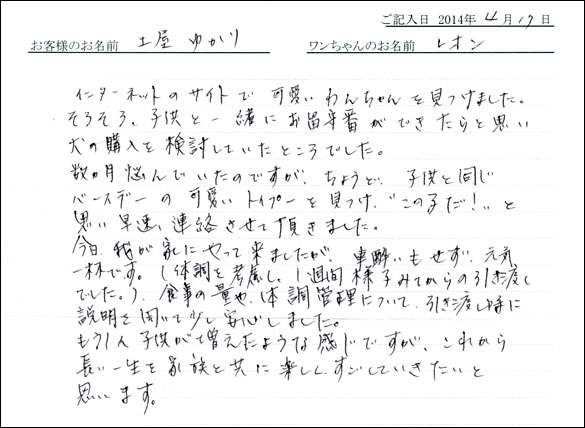 ご記入日 2014年 4月 17日
お客様のお名前 土屋 ゆかり ワンちゃんのお名前 レオン
インターネットのサイトで 可愛いわんちゃんを見つけました。
そろそろ、子供と一緒にお留守番ができたらと思い
犬の購入を検討していたところでした。
数ヵ月悩んでいたのですが、ちょうど、子供と同じ
バースデーの可愛いトイプーを見つけ、"この子だ!"と
思い早速、連絡させて頂きました。
今日、我が家にやって来ましたが、車酔いもせず、元気
一杯です。(体調を考慮し、1週間様子みてからの引き渡し
でした。)、食事の量や、体調管理について、引き渡し時に
説明を聞いて少し安心しました。
もう1人子供が増えたような感じですが、これから
長い一生を家族と共に楽しくすごしていきたいと
思います。